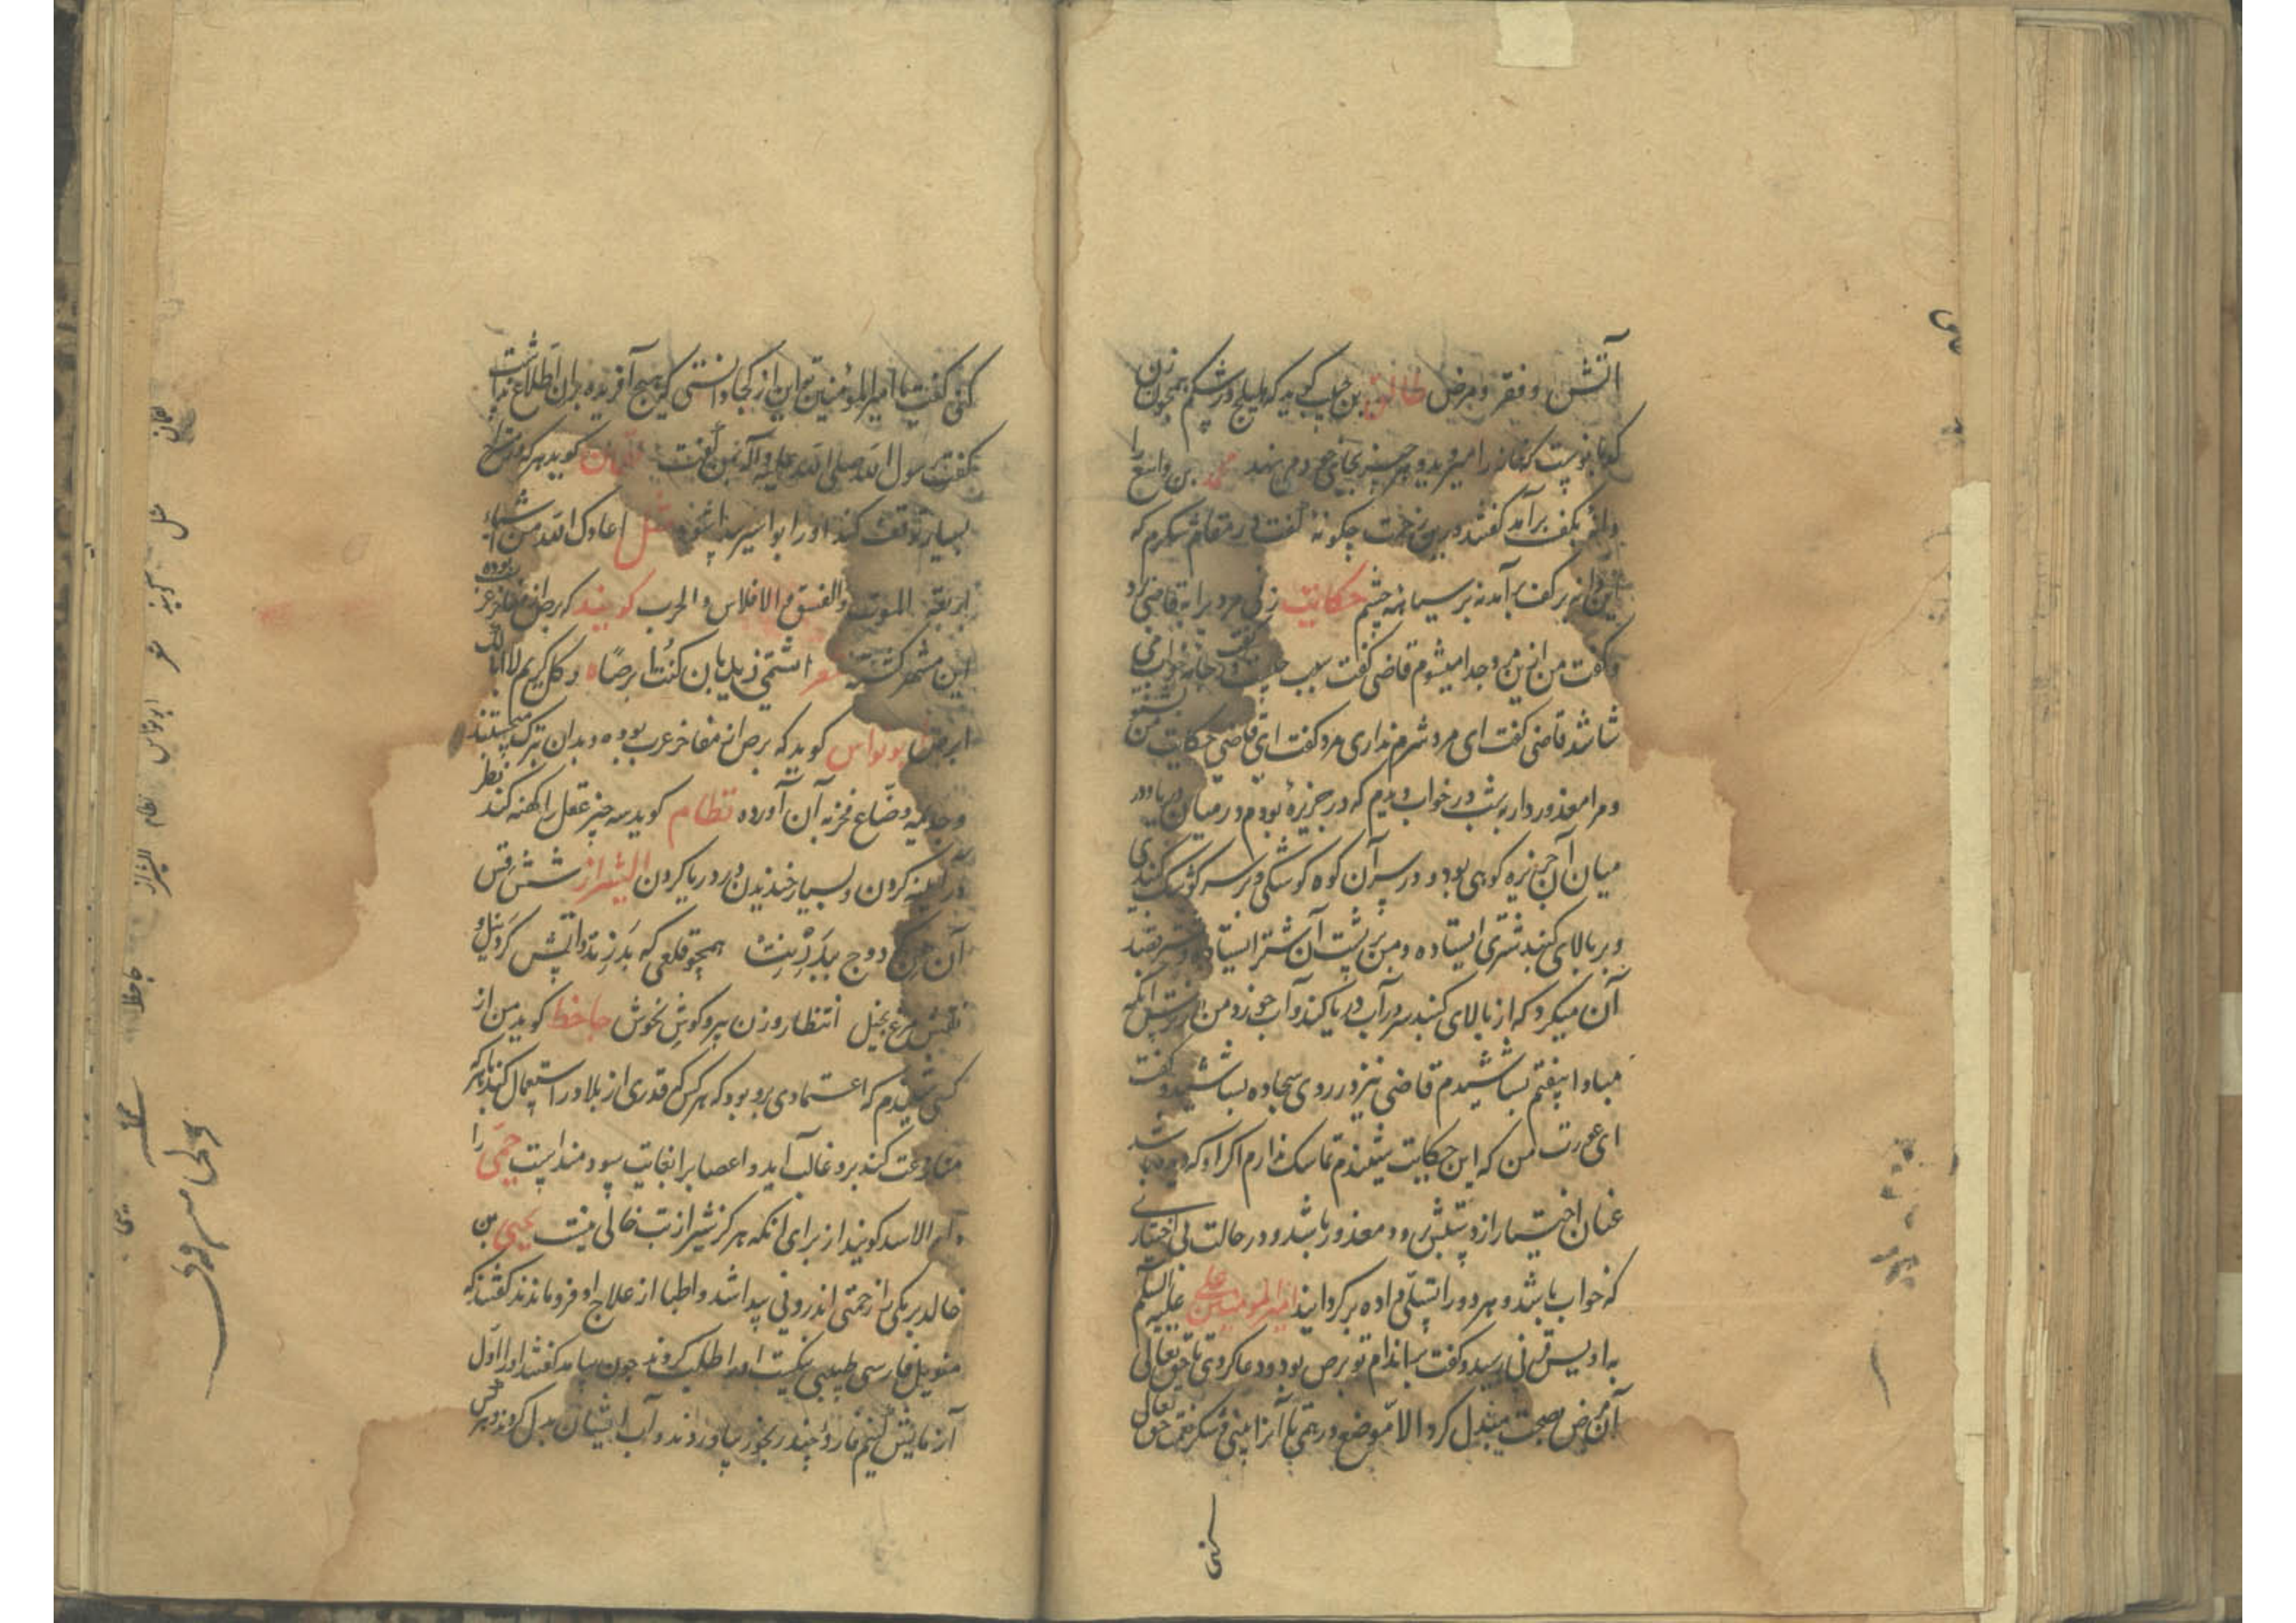 آتش و فقر و مرض طالق بن حبیب گوید که هلیلج در شکم همچون زن
کدبانوست که خانه را میروبد و هر چیز بجای خود می نهد محمد بن واسع را
دانه بکف برآمد گفتند درین زحمت چگونهٔ گفت در مقام شکرم که
این دانه بر کف برآمد نه بر سیاهه چشم حکایت زنی مرد را به قاضی برد
و گفت من ازین مرد جدا میشوم قاضی گفت سبب چیست گفت در جامه خواب می
شاشد قاضی گفت ای مرد شرم نداری مرد گفت ای قاضی حکایت من بشنو
و مرا معذور دار به شب در خواب دیدم که در جزیرهٔ بودم در میان دریا و در
میان آن جزیره کوهی بود و در سر آن کوه کوشکی و بر سر کوشک گنبدی
و بر بالای گنبد شتری ایستاده و من بر پشت آن شتر ایستاده و شتر قصد
آن میکرد که از بالای گنبد سر در آب دریا کند و آب خورد و من از ترس آنکه
مبادا بیفتم بشاشیدم قاضی نیز در روی سجاده بشاشید و گفت
ای عورت من که این حکایت شنیدم تماسک ندارم اگر او که دیده باشد
عنان اختیار از دستش رود معذور باشد و در حالت بی اختیاری
که خواب باشد و هر دو را تسلی داده برگردانید امیرالمومنین علی علیه السلم
به اویس قرنی رسید و گفت بر اندام تو برص بود و دعا کردی تا حق تعالی
آن مرض بصحت مبدل کرد الا موضع درهمی تا آنرا بینی و شکر نعمت حق تعالی
کنی
کنی گفت یا امیرالمؤمنین این از کجا دانستی که هیچ آفریده بران اطلاع نداشت
گفت رسول الله صلی الله علیه و آله بمن گفت لقمان گوید هر که در مستراح
بسیار توقف کند او را بواسیر پیدا شود مثل اعاذک الله من اشیاء
اربعة الموت والفسق و الافلاس و الحرب گویند که برص از مفاخر عرب بوده
این مشهر گفته شعر اشتمی زید بان کنت ابرصا ه و کل کریم لا ابا لک
ابرص ابونواس گوید که برص از مفاخر عرب بوده و بدان تبرک میجستند
و جذیمه وضاح فخر به آن آورده نظام گوید سه چیز عقل را کهنه کند نظر
در آینه کردن و بسیار خندیدن و در دریا کردن الشیراز شش قس
همچو قلعی که
مرغ بخیل انتظار و زن پیر و کوش ناخوش جاحظ گوید من از
کسی شنیدم که اعتمادی برو بود که هر کس که قدری از بلادر استعمال کند باه که
مناوعت کند برو غالب آید و اعصاب را بغایت سودمند است حمی را
دار الاسد گویند از برای آنکه هرگز شیر از تب خالی نیست یحیی بن
خالد برمکی را زحمتی اندرونی پیدا شد و اطبا از علاج او فروماندند گفتند که
منویل فارسی طبیبی نیکست او را طلب کردند چون بیامد گفتند او را اول
آزمایش کنیم قارورهٔ چند رنجور بیاوردند و آب ایشان بدل کردند و هر کس
لقمان
مثل
گویند
شعر
ابونواس
نظام
الشیراز
جاحظ
حمی
یحیی